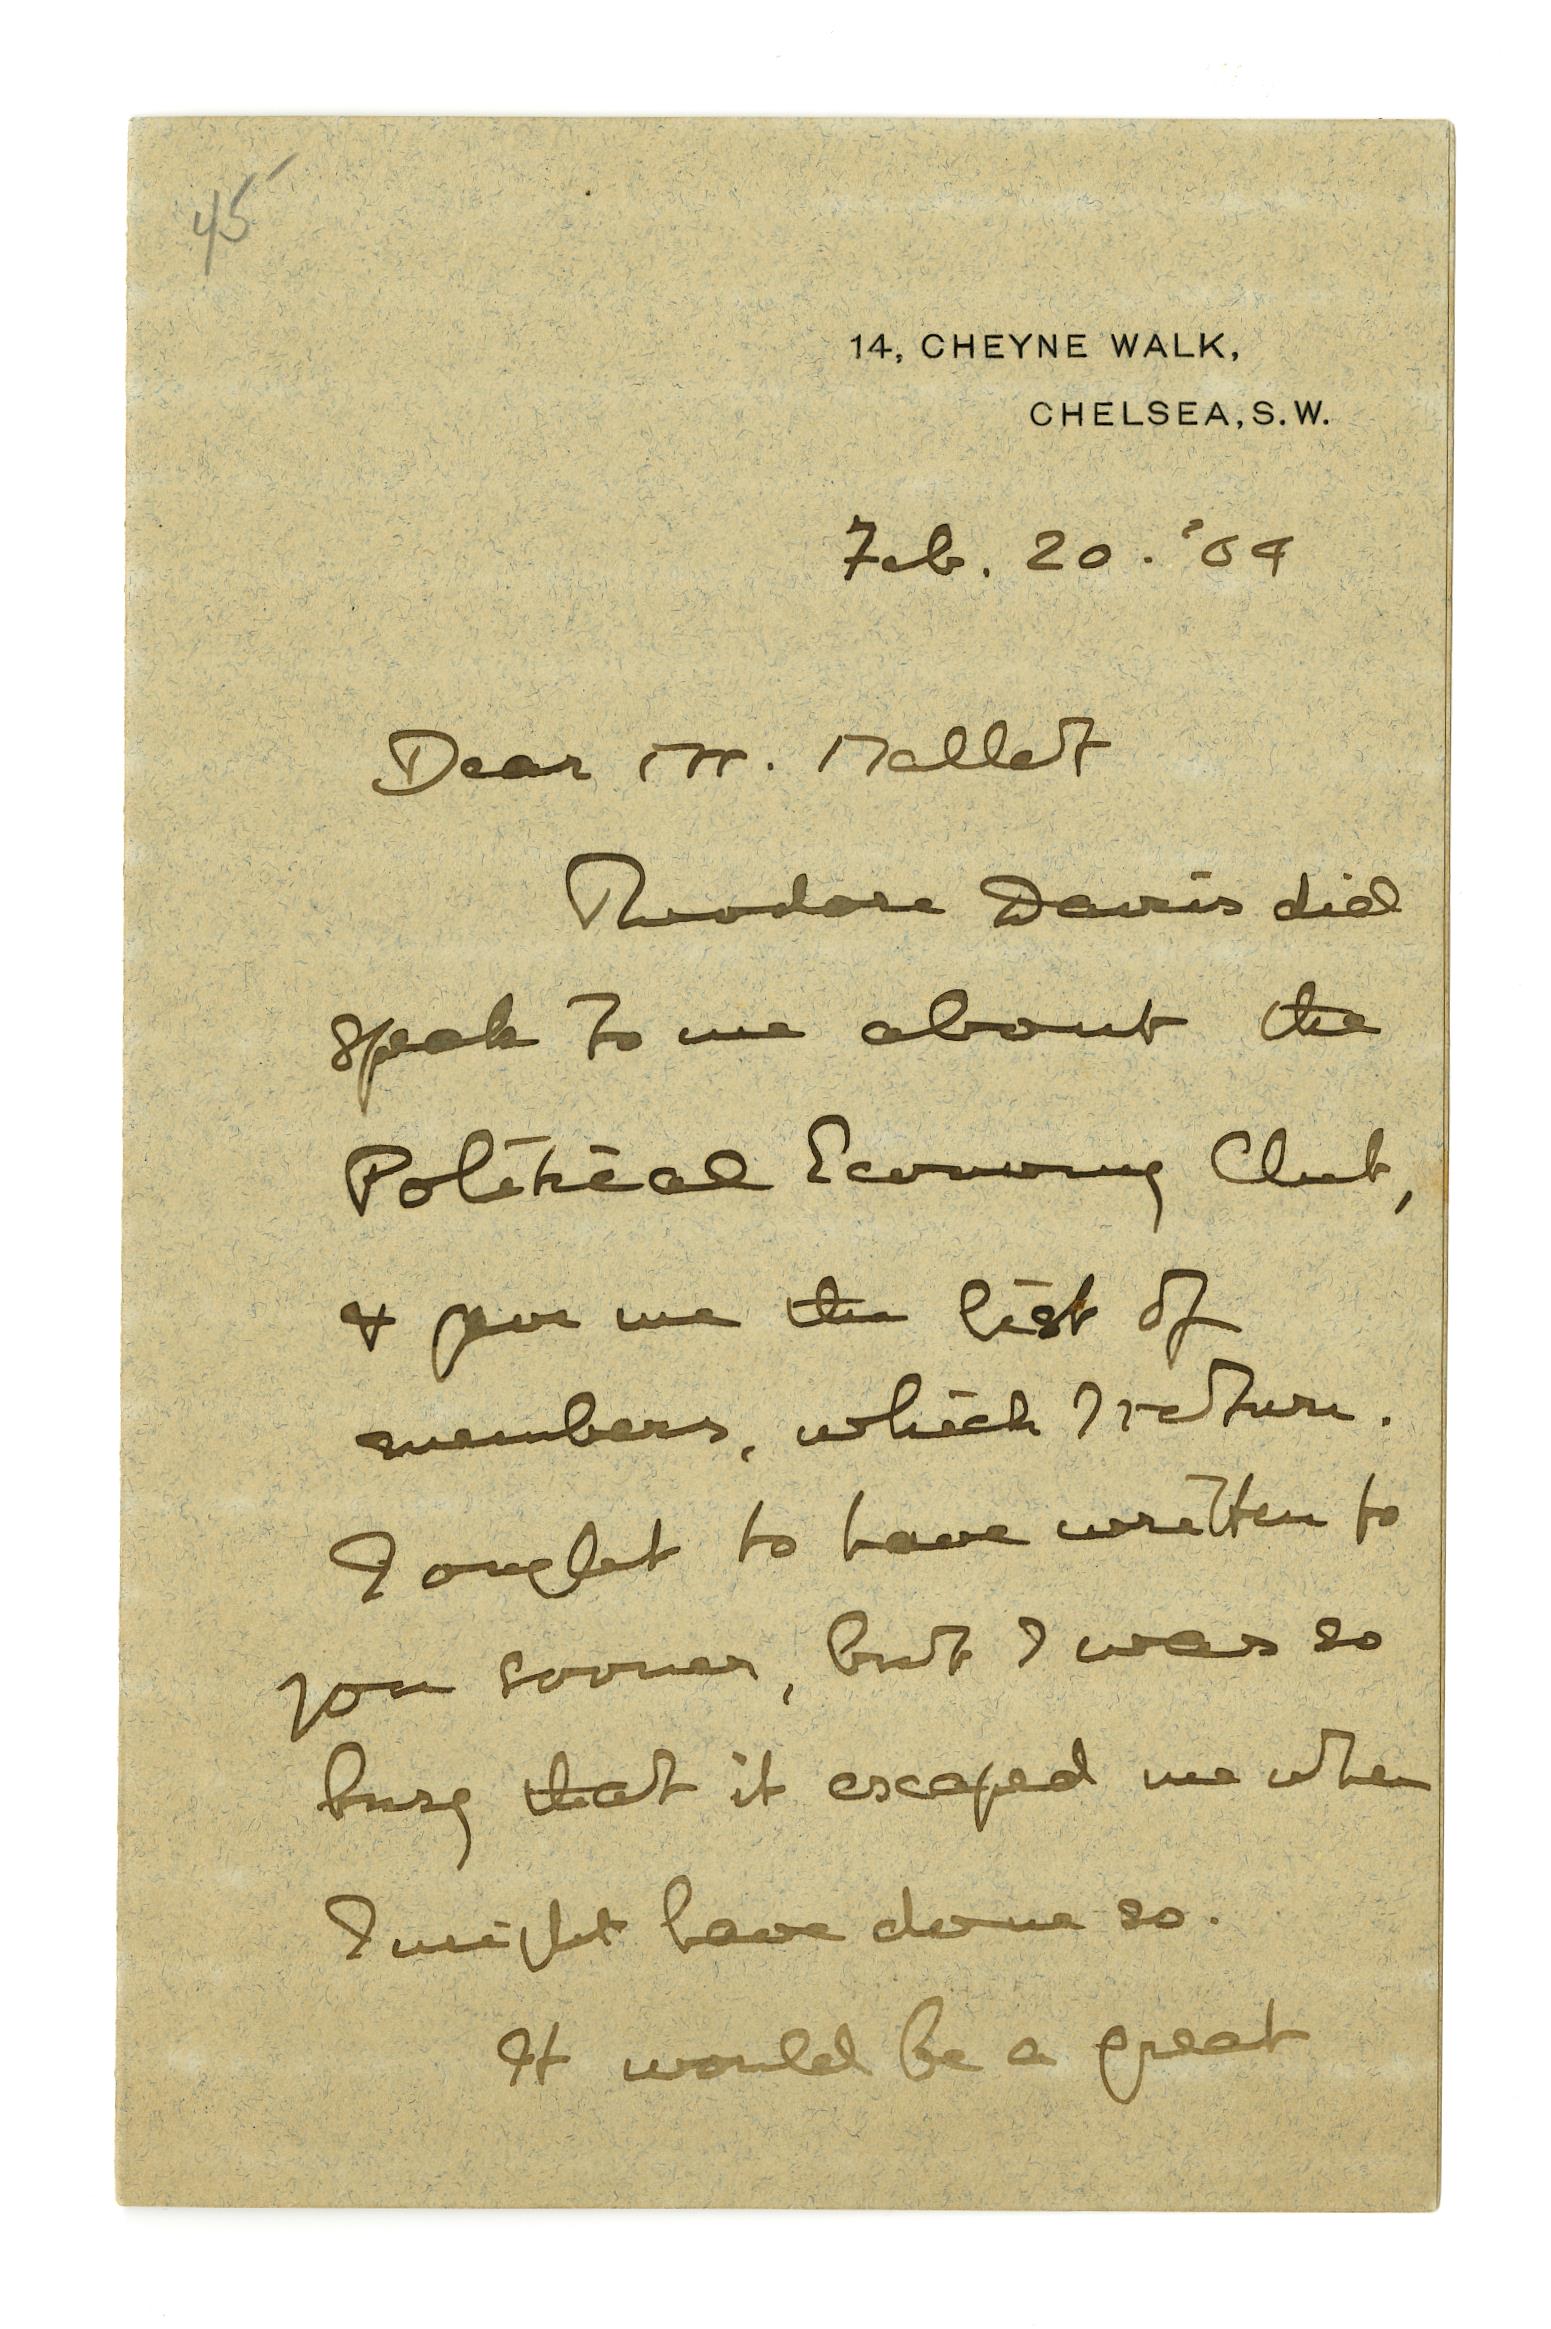 45
14, CHEYNE WALK,
CHELSEA, S.W.
Feb. 20. '04
Dear Mr. Mallet
Theodore Davies did
speak to me about the
Political Economy Club,
& gave me the list of
members, which I return.
I ought to have written to
you sooner, but I was so
busy that it escaped me when
I might have done so.
It would be a great